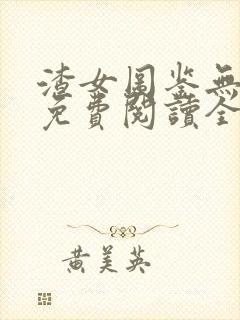 渣女图鉴無
免費閱讀全
黃美英